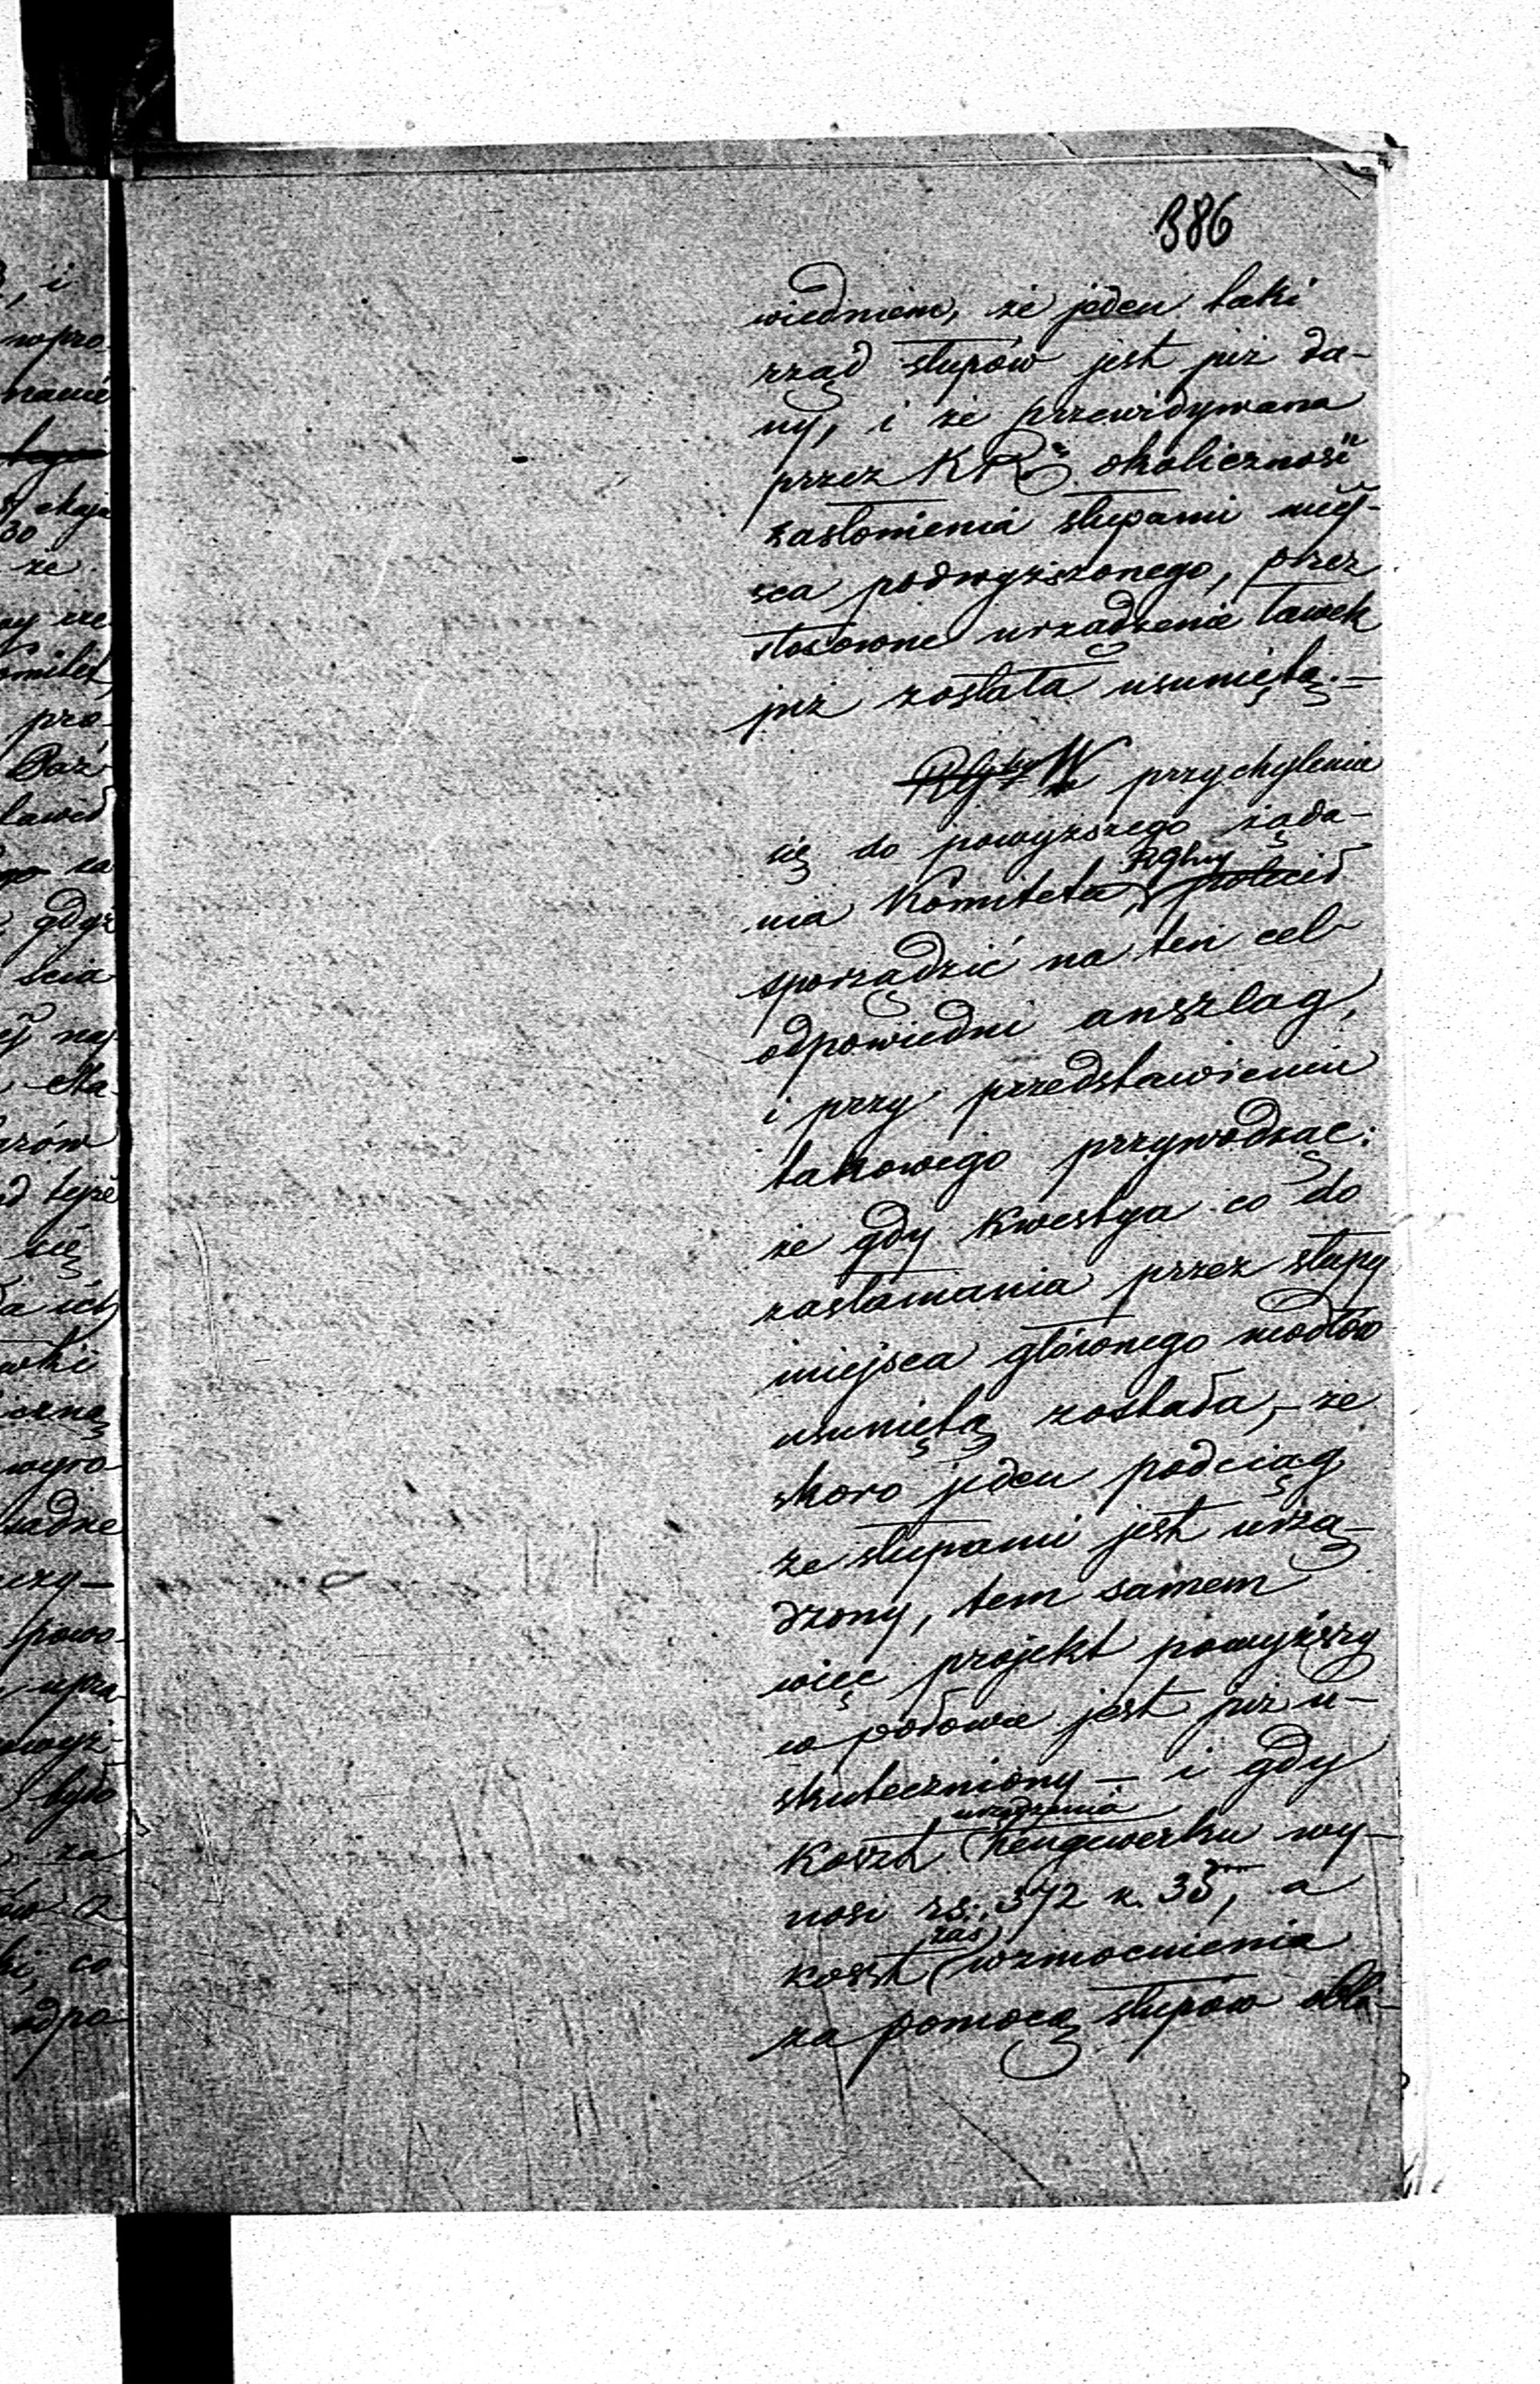 386
wiedniem, że jeden taki
rząd słupów jest już da-
ny, i że przewidywana
przez KR okoliczność
zasłonienia słupami miej-
sca podwyższonego, przez
stosowne urządzenie ławek
już została usuniętą.—
W przychylenia
się do powyższego żąda-
nia Komiteta, RGbny polecił
sporządzić na ten cel
odpowiedni anszlag,
i przy przedstawieniu
takowego przywodząc:
że gdy kwestya co do
zasłaniania przez słupy
miejsca głównego modłów
usuniętą została, – że
skoro jeden podciąg
ze słupami jest urzą-
dzony, tem samem
więc projekt powyższy
w połowie jest już u-
skuteczniony – i gdy
urządzenia
koszt hengewerku wy-
nosi rs. 372 k. 35, a
zaś
koszt wzmocnienia
za pomocą słupów obli-
i
wpro
Maja
30
że
pro-
gdyż
scia
naj
rzów
tejże
się
ich
iczną
wyro-
sadne
czy-
spowo-
było
za
co
odpo-